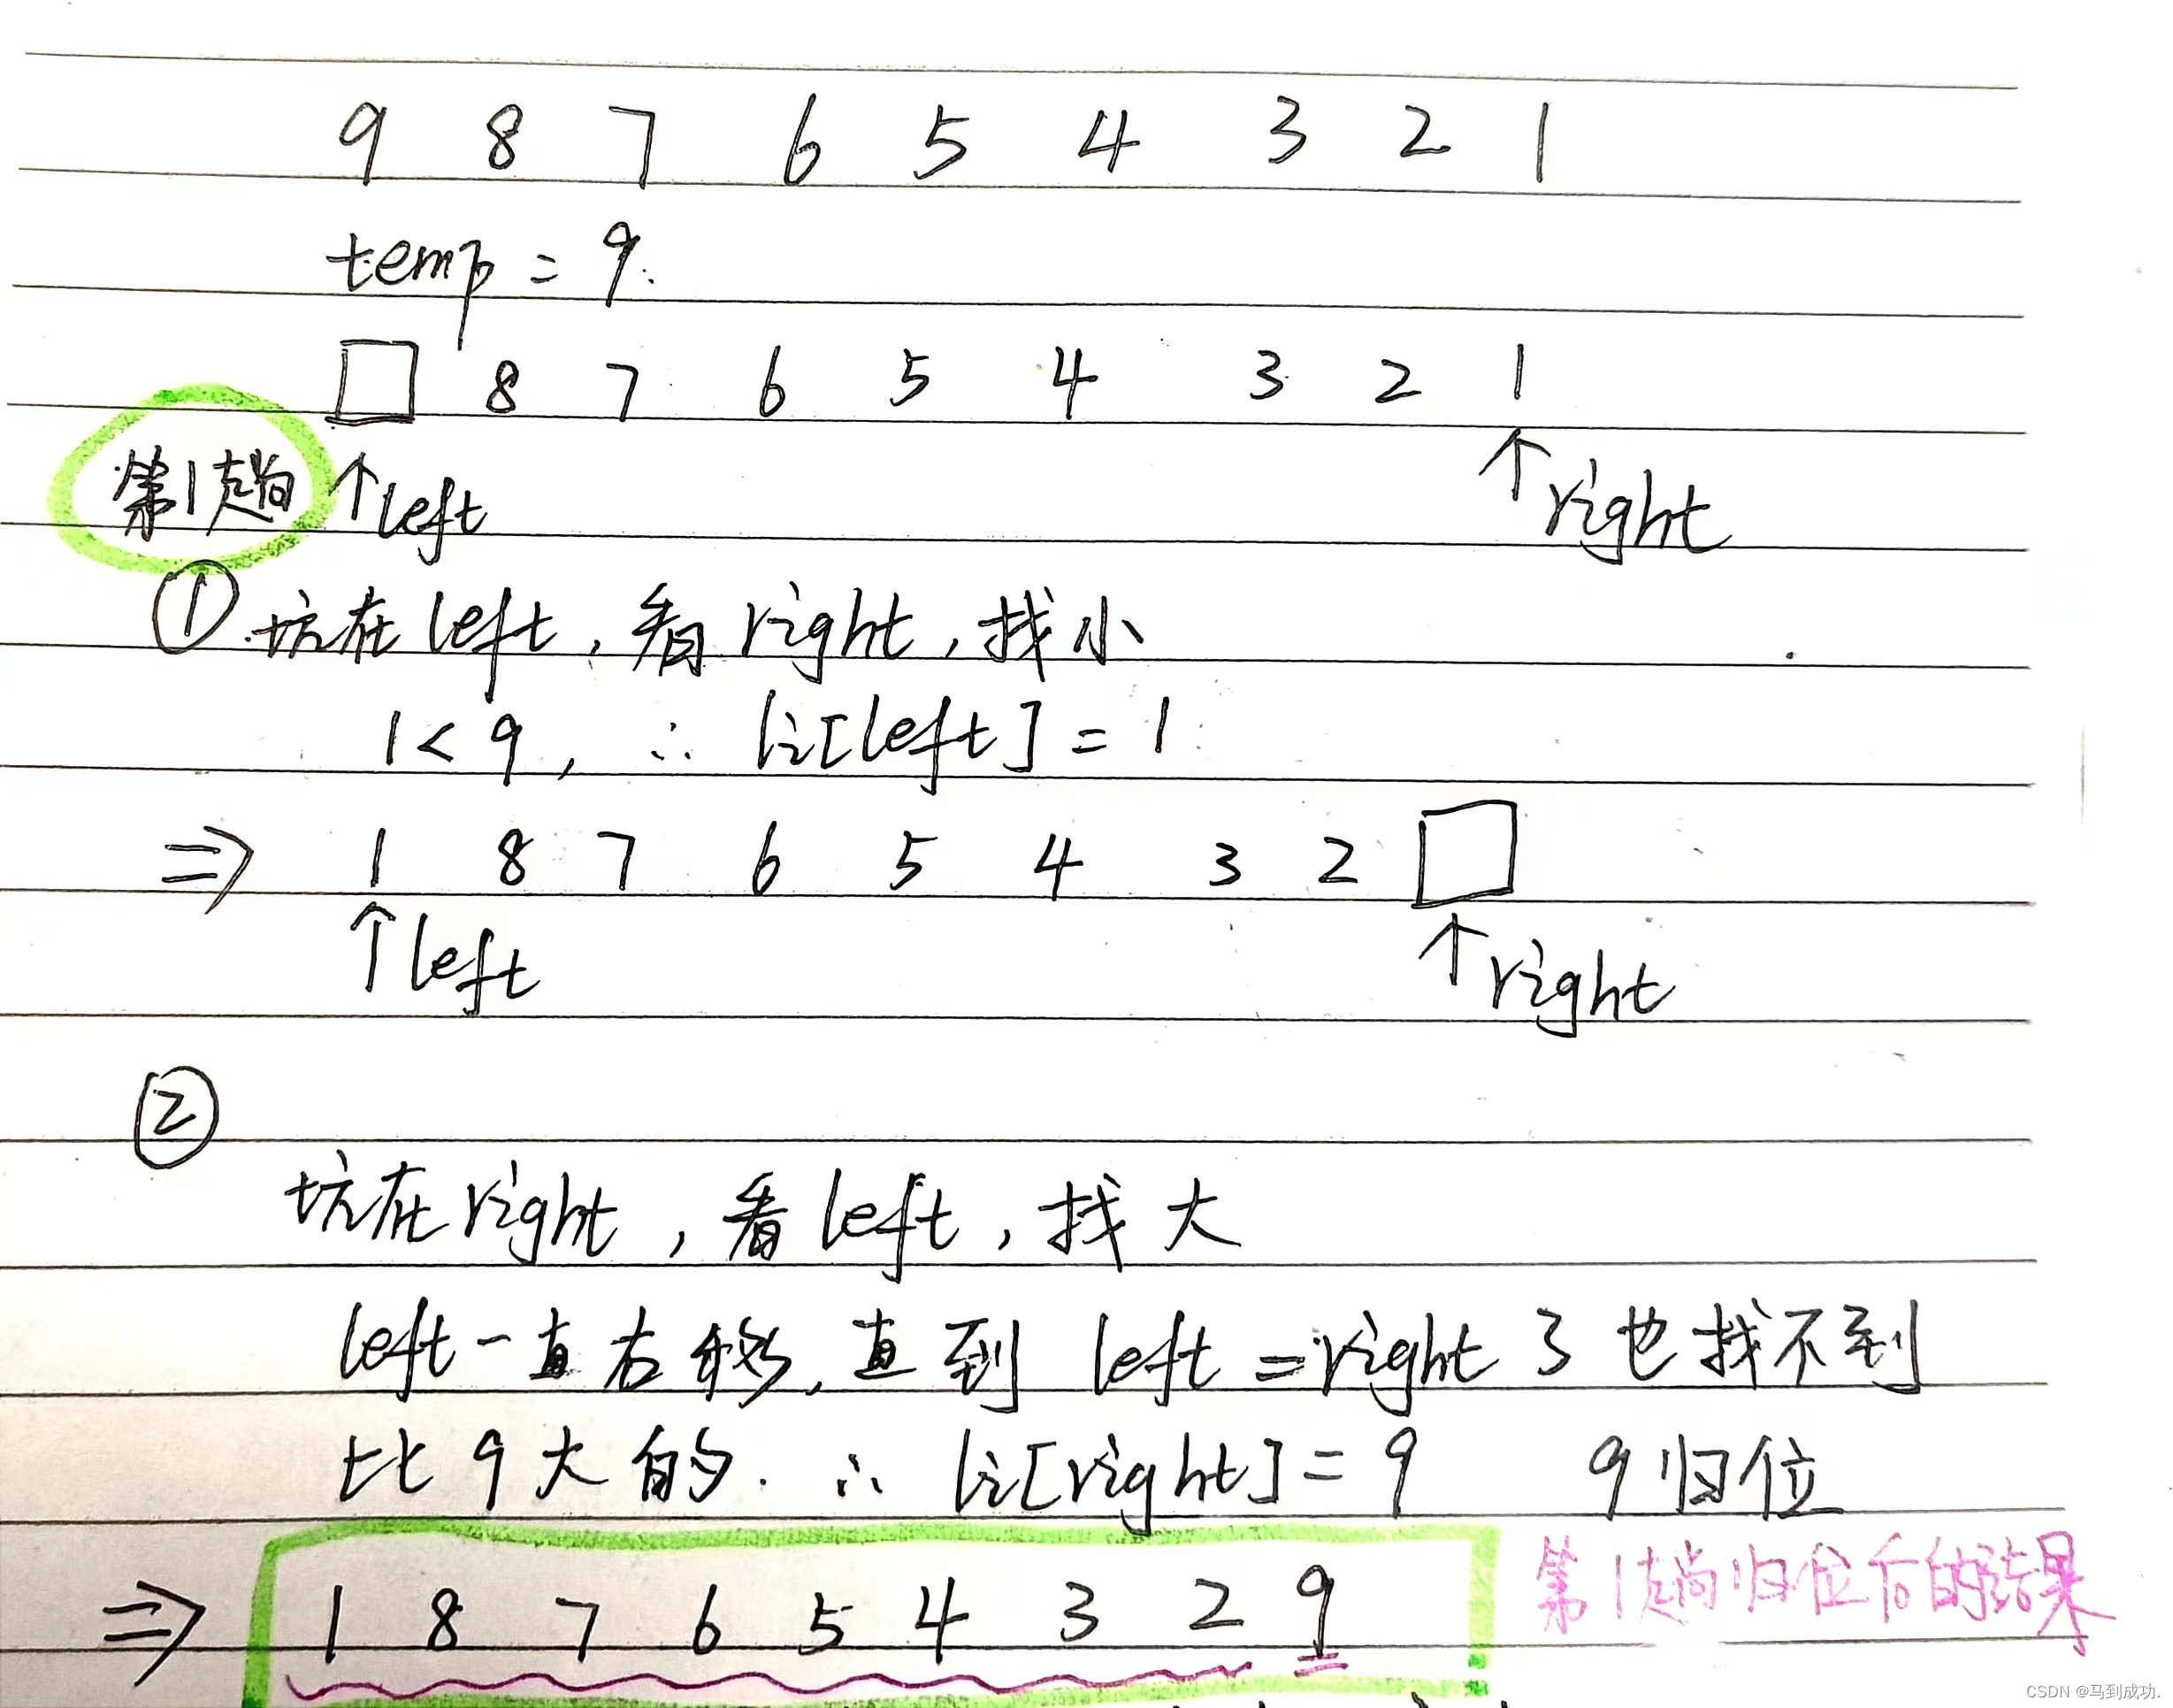 9 8 7 6 5 4 3 2 1
temp = 9.
8 7 6 5 4 3 2 1
第1趟 ↑left ↑right
① 坑在left,看right,找小
1<9, ∴ li[left] = 1
⇒ 1 8 7 6 5 4 3 2
↑left ↑right
②
坑在right,看left,找大
left一直右移,直到 left =right了也找不到
比9大的. ∴ li[right]=9 9归位
⇒ 1 8 7 6 5 4 3 2 9 第1趟归位后的结果
CSDN @马到成功.